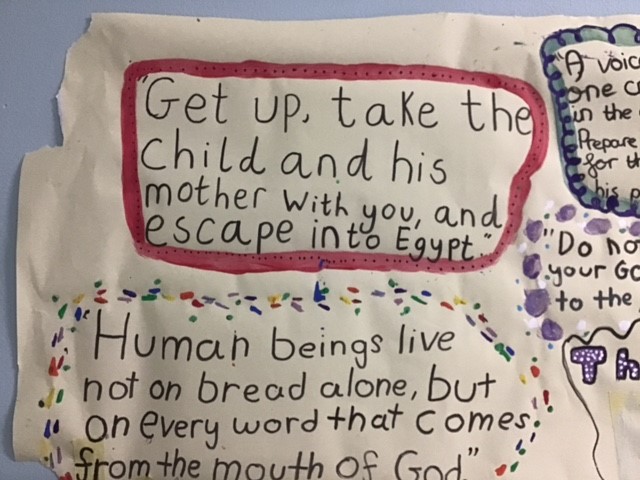 "Get up, take the
child and his
mother with you, and
escape into Egypt."
Human beings live
not on bread alone, but
on every word that comes
from the mouth of God"
"A voic
one c
in the
Prepare
for th
his p
"Do no
your Go
to the
Th